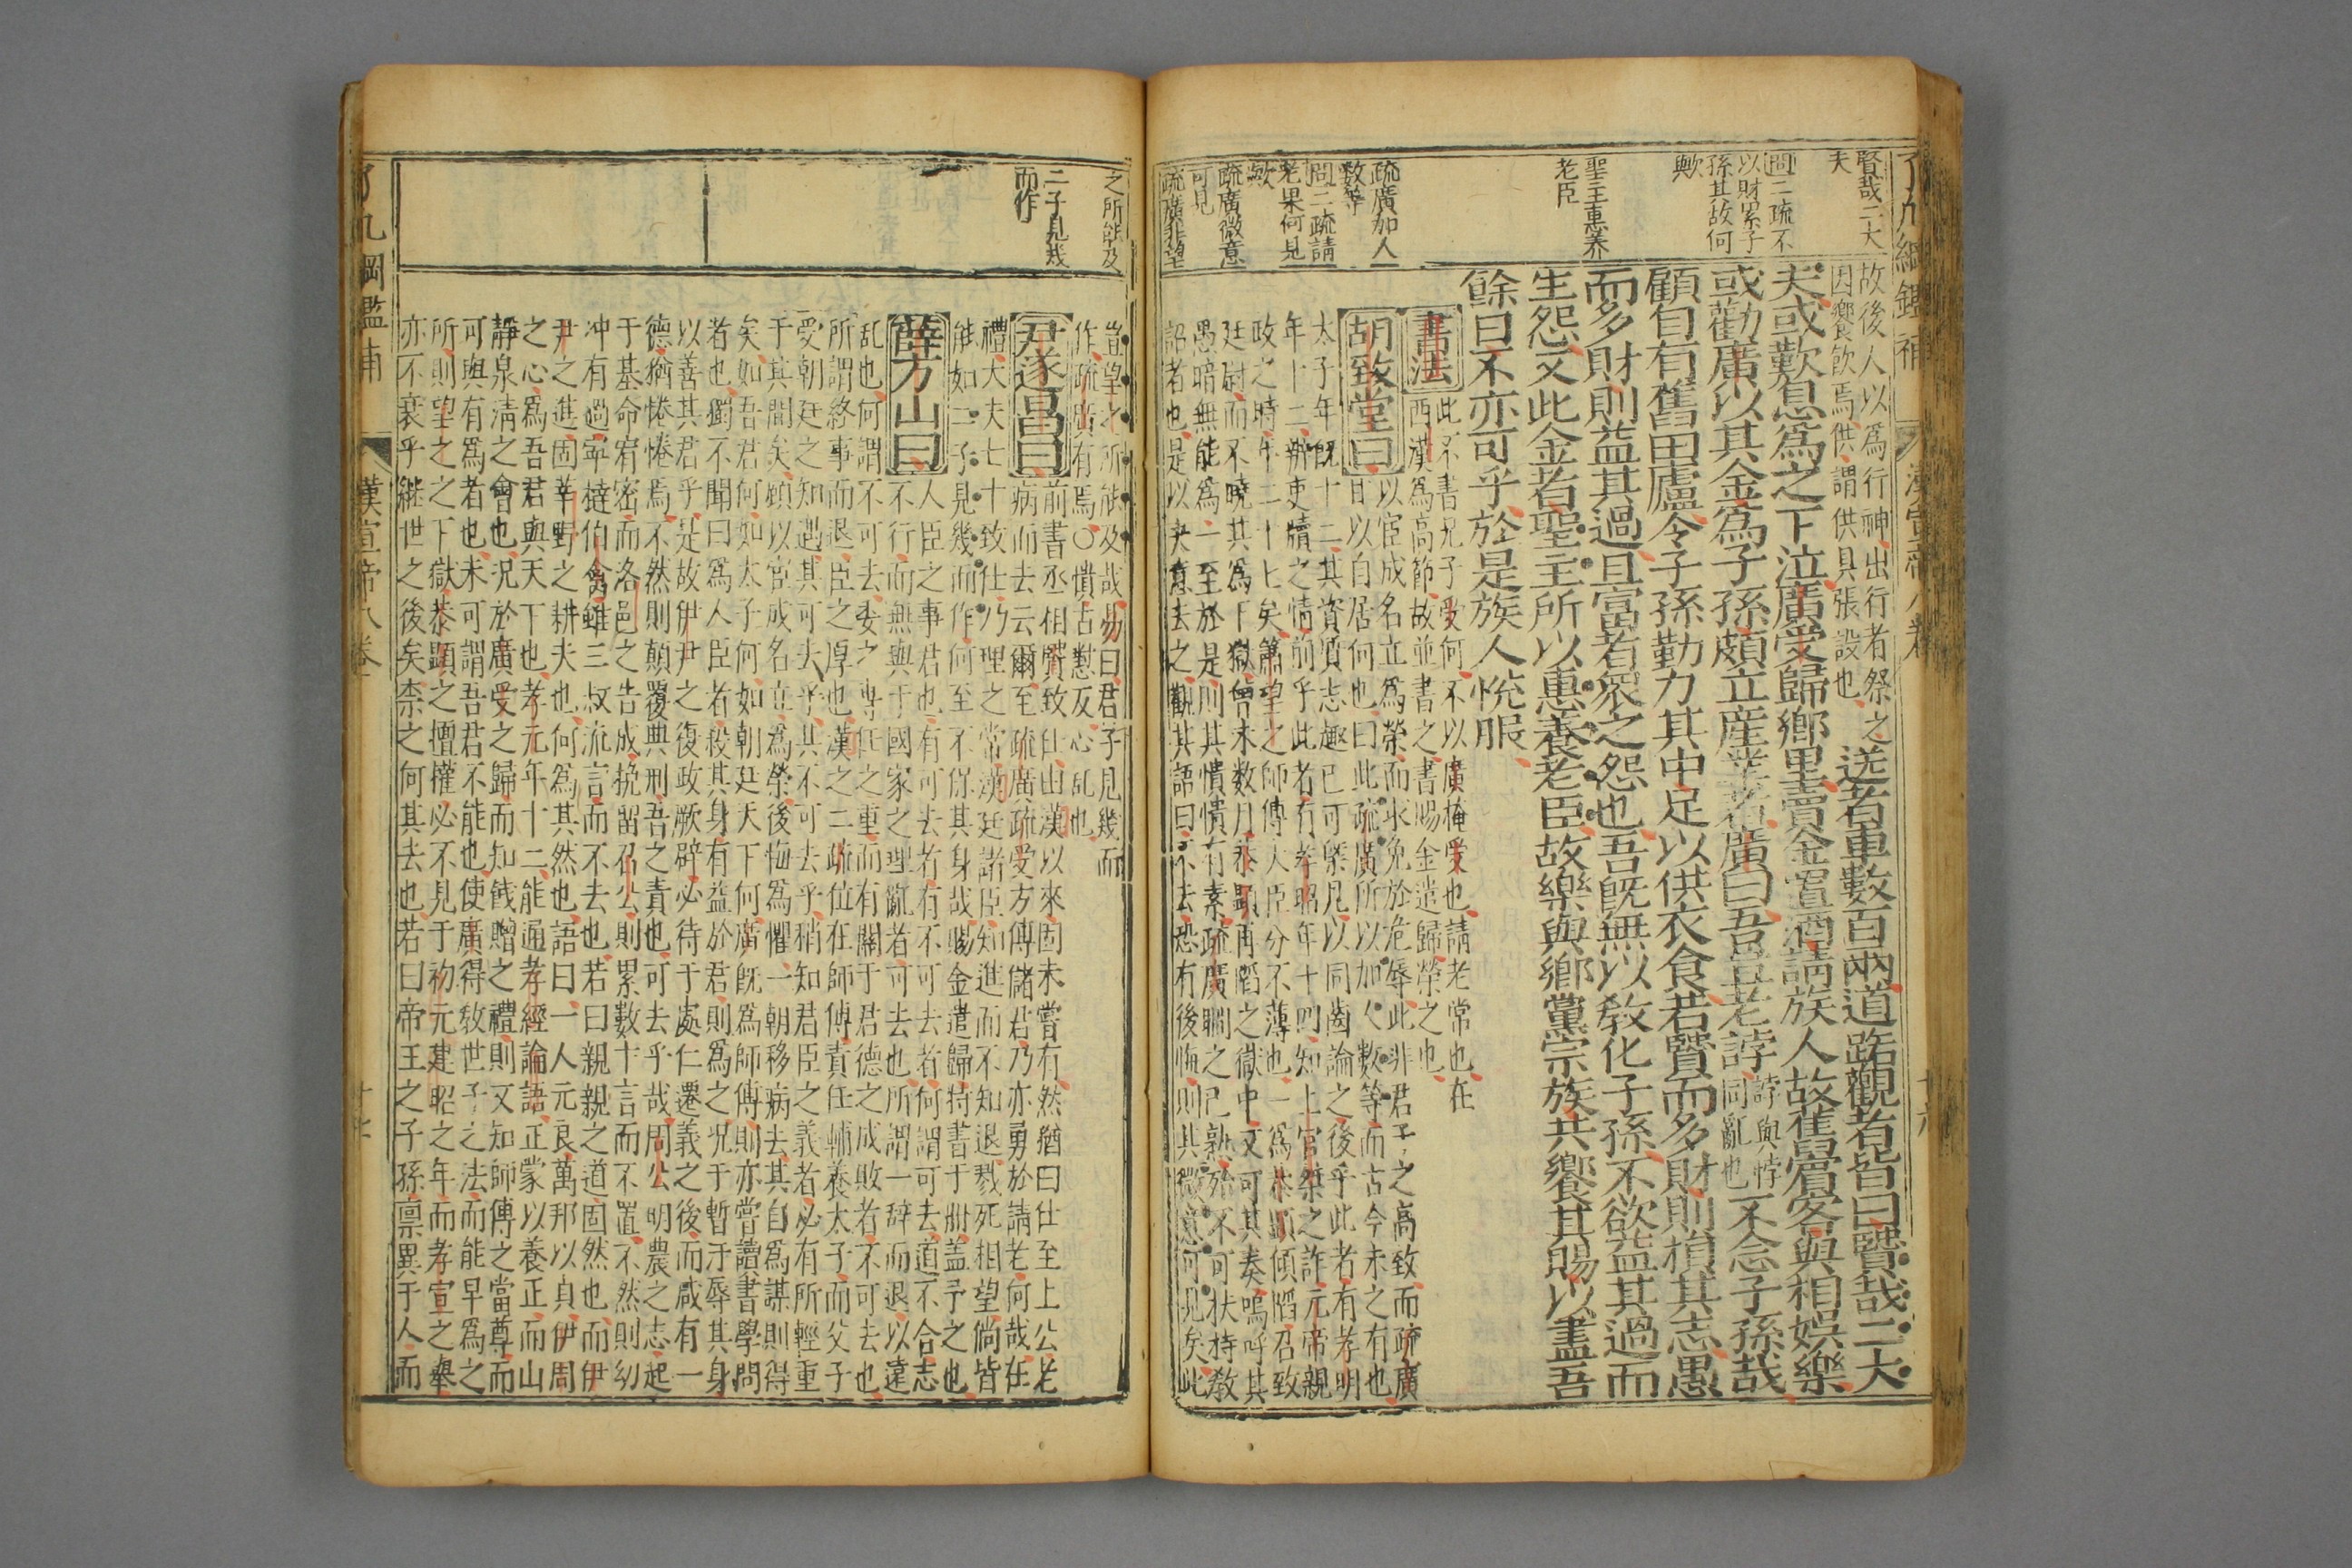 賢哉二大
夫
問二疏不
以財累子
孫其故何
歟
聖主惠養
老臣
疏廣加人
數等
問二疏請
老果何見
歟
疏廣微意
可見
疏廣非望
故後人以爲行神出行者祭之
因饗飮焉供謂供具張設也
送者車數百兩道路觀者皆曰賢哉二大
夫或歎息爲之下泣廣受歸鄉里賣金置酒請族人故舊賓客與相娛樂
或勸廣以其金爲子孫頗立産業者廣曰吾豈老誖
誖與悖
同亂也
不念子孫哉
顧自有舊田廬令子孫勤力其中足以供衣食若賢而多財則損其志愚
而多財則益其過且富者衆之怨也吾旣無以教化子孫不欲益其過而
生怨又此金者聖主所以惠養老臣故樂與鄉黨宗族共饗其賜以盡吾
餘日不亦可乎於是族人悅服
書法
此不書兄子受何不以廣掩受也請老常也在
西漢爲高節故並書之書賜金遣歸榮之也
胡致堂曰
以宦成名立爲榮而求免於危辱此非君子之高致而疏廣
日以自居何也曰此疏廣所以加人數等而古今未之有也
太子年旣十二其資質志趣已可槩見以同齒論之後乎此者有孝明
年十二辨吏牘之情前乎此者有孝昭年十四知上官桀之詐元帝親
政之時年二十七矣蕭望之師傅大臣分不薄也一爲恭顯傾陷召致
廷尉而不曉其爲下獄曾未数月恭顯再陷之獄中又可其奏嗚呼其
愚暗無能爲一至於是則其憒憒有素疏廣瞯之已熟殆不可扶持教
詔者也是以決意去之觀其語曰不去恐有後悔則其微意可見矣此
了凡綱鑑補
漢宣帝八卷
十六
之所能及
二子見幾
而作
豈望之所能及哉易曰君子見幾而
作疏廣有焉○憒古對反心亂也
尹遂昌曰
前書丞相賢致仕由漢以來固未嘗有然猶曰仕至上公老
病而去云爾至疏廣疏受方傅儲君乃亦勇於請老何哉在
禮大夫七十致仕乃理之常漢廷諸臣知進而不知退戮死相望倘皆
能如二子見幾而作何至不保其身哉賜金遣歸特書于冊蓋予之也
薛方山曰
人臣之事君也有可去者有不可去者何謂可去道不合志
不行而無與于國家之理亂者可去也所謂一辭而退以遠
亂也何謂不可去委之專任之重而有關于君德之成敗者不可去也
所謂終事而退臣之厚也漢之二疏位在師傅責任輔養太子而父子
受朝廷之知遇其可去乎其不可去乎稍知君臣之義者必有所輕重
于其間矣顧以宦成名立爲榮後悔爲懼一朝移病去其自爲謀則得
矣如吾君何如太子何如朝廷天下何廣旣爲師傅則亦嘗讀書學問
者也獨不聞曰爲人臣者殺其身有益於君則爲之况于暫汙辱其身
以善其君乎是故伊尹之復政厥辟必待于處仁遷義之後而咸有一
德猶惓惓焉不然則顛覆典刑吾之責也可去乎哉周公明農之志起
于基命宥密而洛邑之告成挽留召公則累數千言而不置不然則幼
冲有過寧撻伯禽雖三叔流言而不去也若曰親親之道固然也而伊
尹之進固莘野之耕夫也何爲其然也語曰一人元良萬邦以貞伊周
之心爲吾君與天下也孝元年十二能通孝經論語正蒙以養正而山
靜泉淸之會也况於廣受之歸而知餞贈之禮則又知師傅之當尊而
可與有爲者也未可謂吾君不能也使廣得教世子之法而能早爲之
所則望之之下獄恭顯之擅權必不見于初元建昭之年而孝宣之舉
亦不衰乎繼世之後矣柰之何其去也若曰帝王之子孫禀異于人而
了凡綱鑑補
漢宣帝八卷
十七